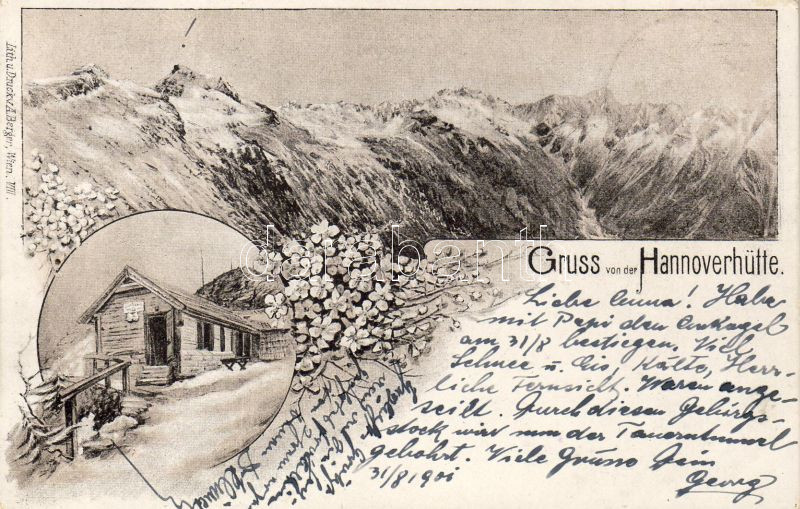 Lith. u. Druck v. A. Berger, Wien. VIII.
Gruss von der Hannoverhütte.
Liebe Anna! Habe
mit Papi den Ankogel
am 31/8 bestiegen. Viel
Schnee u. Eis, Kälte, Herr-
liche Fernsicht. Waren ange-
seilt. Durch diesen Gebirgs-
stock wird nun der Tauerntunnel
gebohrt. Viele Grüsse Dein
31/8 901 Georg
darabanth.com